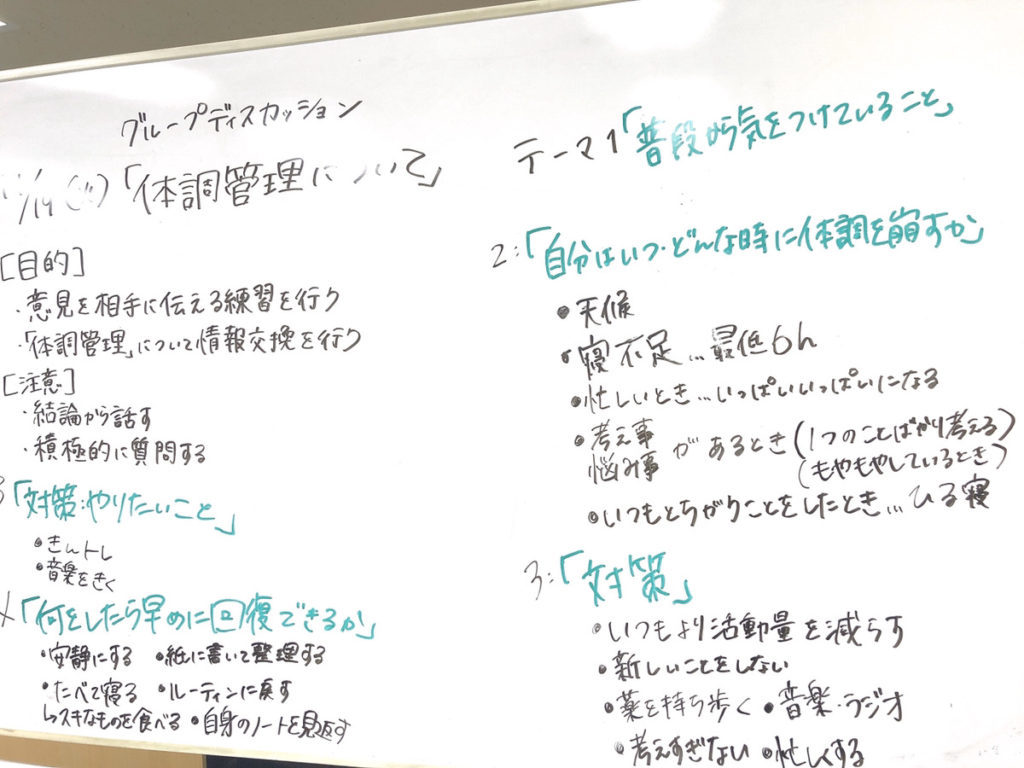 グループディスカッション
/19 「体調管理について」
[目的]
・意見を相手に伝える練習を行う
・「体調管理」について情報交換を行う
[注意]
・結論から話す
・積極的に質問する
「対策・やりたいこと」
•きんトレ
•音楽をきく
「何をしたら早めに回復できるか」
•安静にする •紙に書いて整理する
•たべて寝る •ルーティンに戻す
↳スキなものを食べる •自身のノートを見返す
テーマ1「普段から気をつけていること」
2:「自分はいつ・どんな時に体調を崩すか」
•天候
•寝不足…最低6h
•忙しいとき…いっぱいいっぱいになる
•考え事
悩み事 があるとき (1つのことばかり考える)
(もやもやしているとき)
•いつもとちがうことをしたとき…ひる寝
3:「対策」
•いつもより活動量を減らす
•新しいことをしない
•薬を持ち歩く •音楽・ラジオ
•考えすぎない •忙しくする